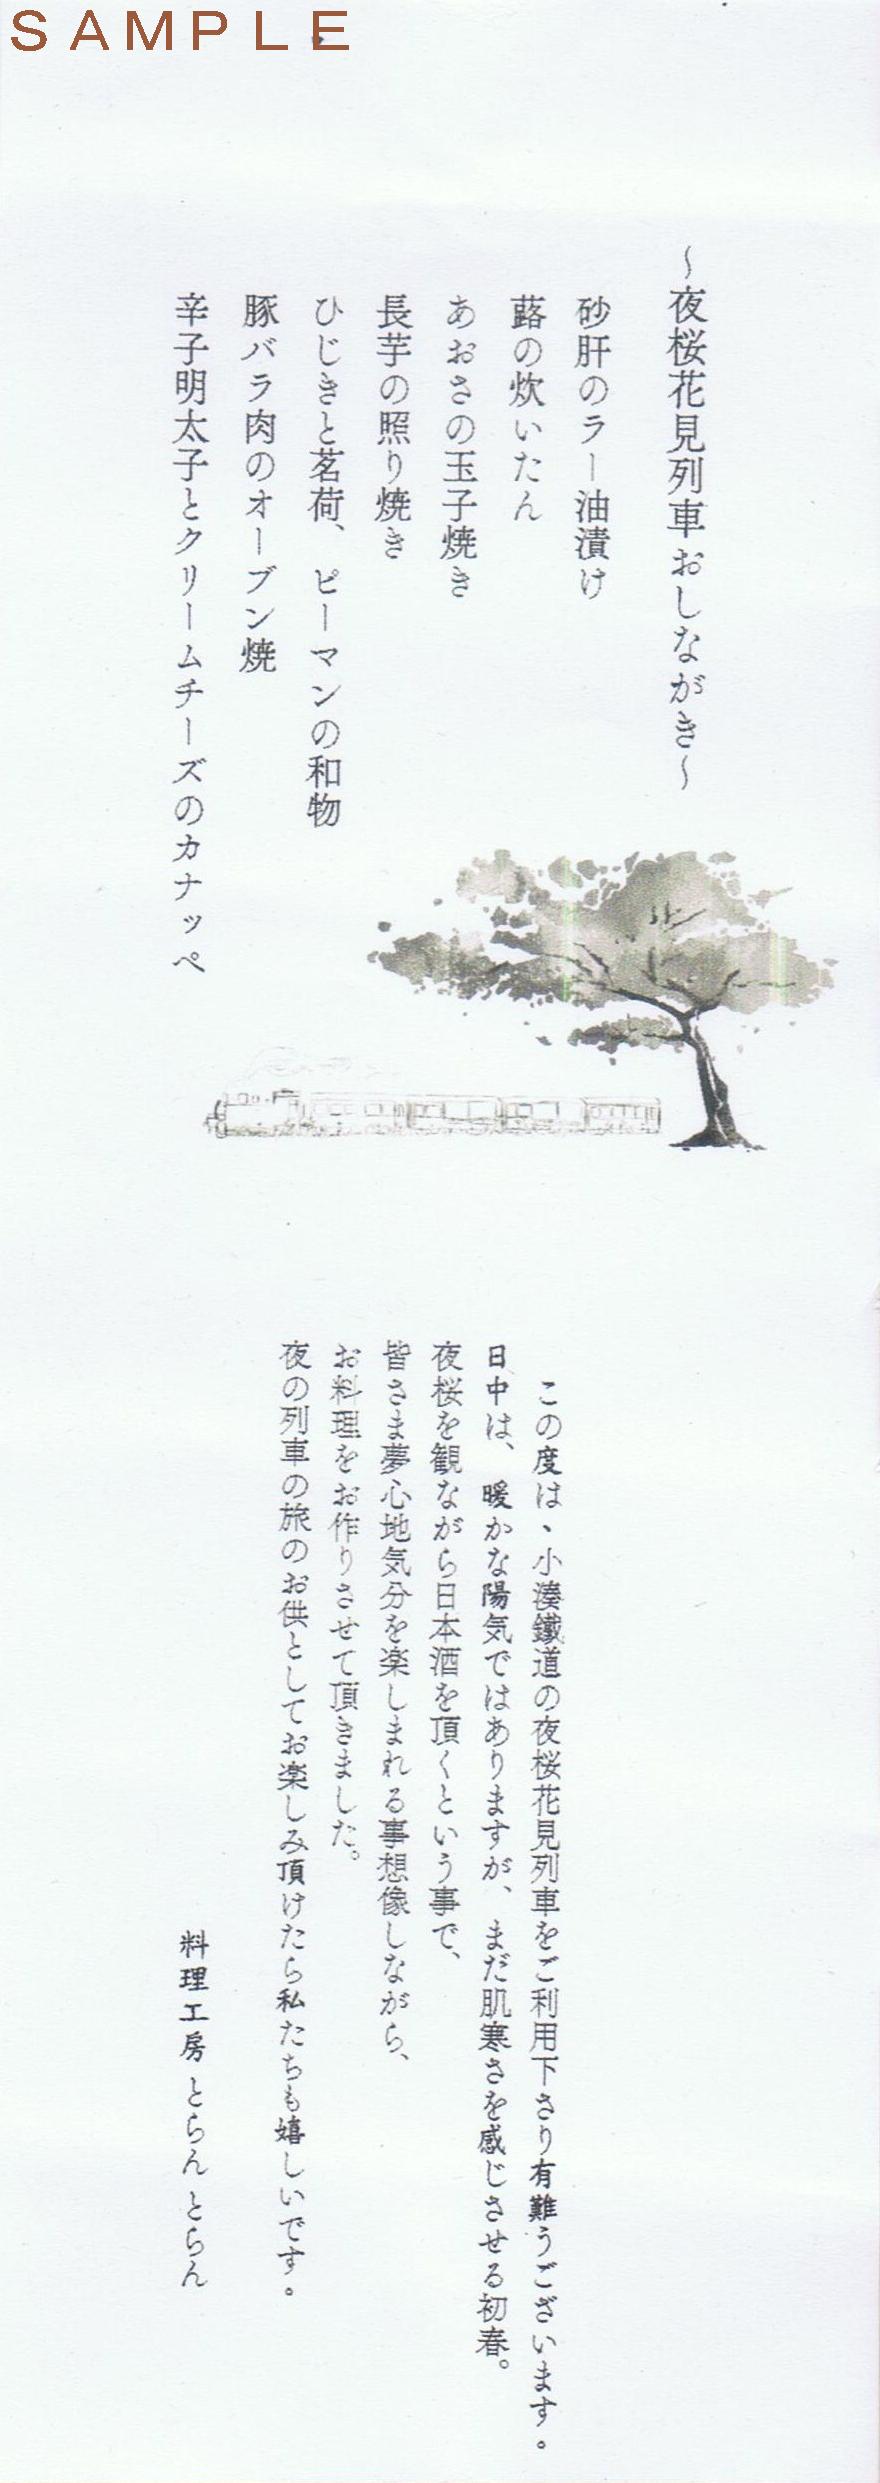 SAMPLE
～夜桜花見列車おしながき～
砂肝のラー油漬け
蕗の炊いたん
あおさの玉子焼き
長芋の照り焼き
ひじきと茗荷、ピーマンの和物
豚バラ肉のオーブン焼
辛子明太子とクリームチーズのカナッペ
この度は、小湊鐵道の夜桜花見列車をご利用下さり有難うございます。
日中は、暖かな陽気ではありますが、まだ肌寒さを感じさせる初春。
夜桜を観ながら日本酒を頂くという事で、
皆さま夢心地気分を楽しまれる事想像しながら、
お料理をお作りさせて頂きました。
夜の列車の旅のお供としてお楽しみ頂けたら私たちも嬉しいです。
料理工房 とらん とらん